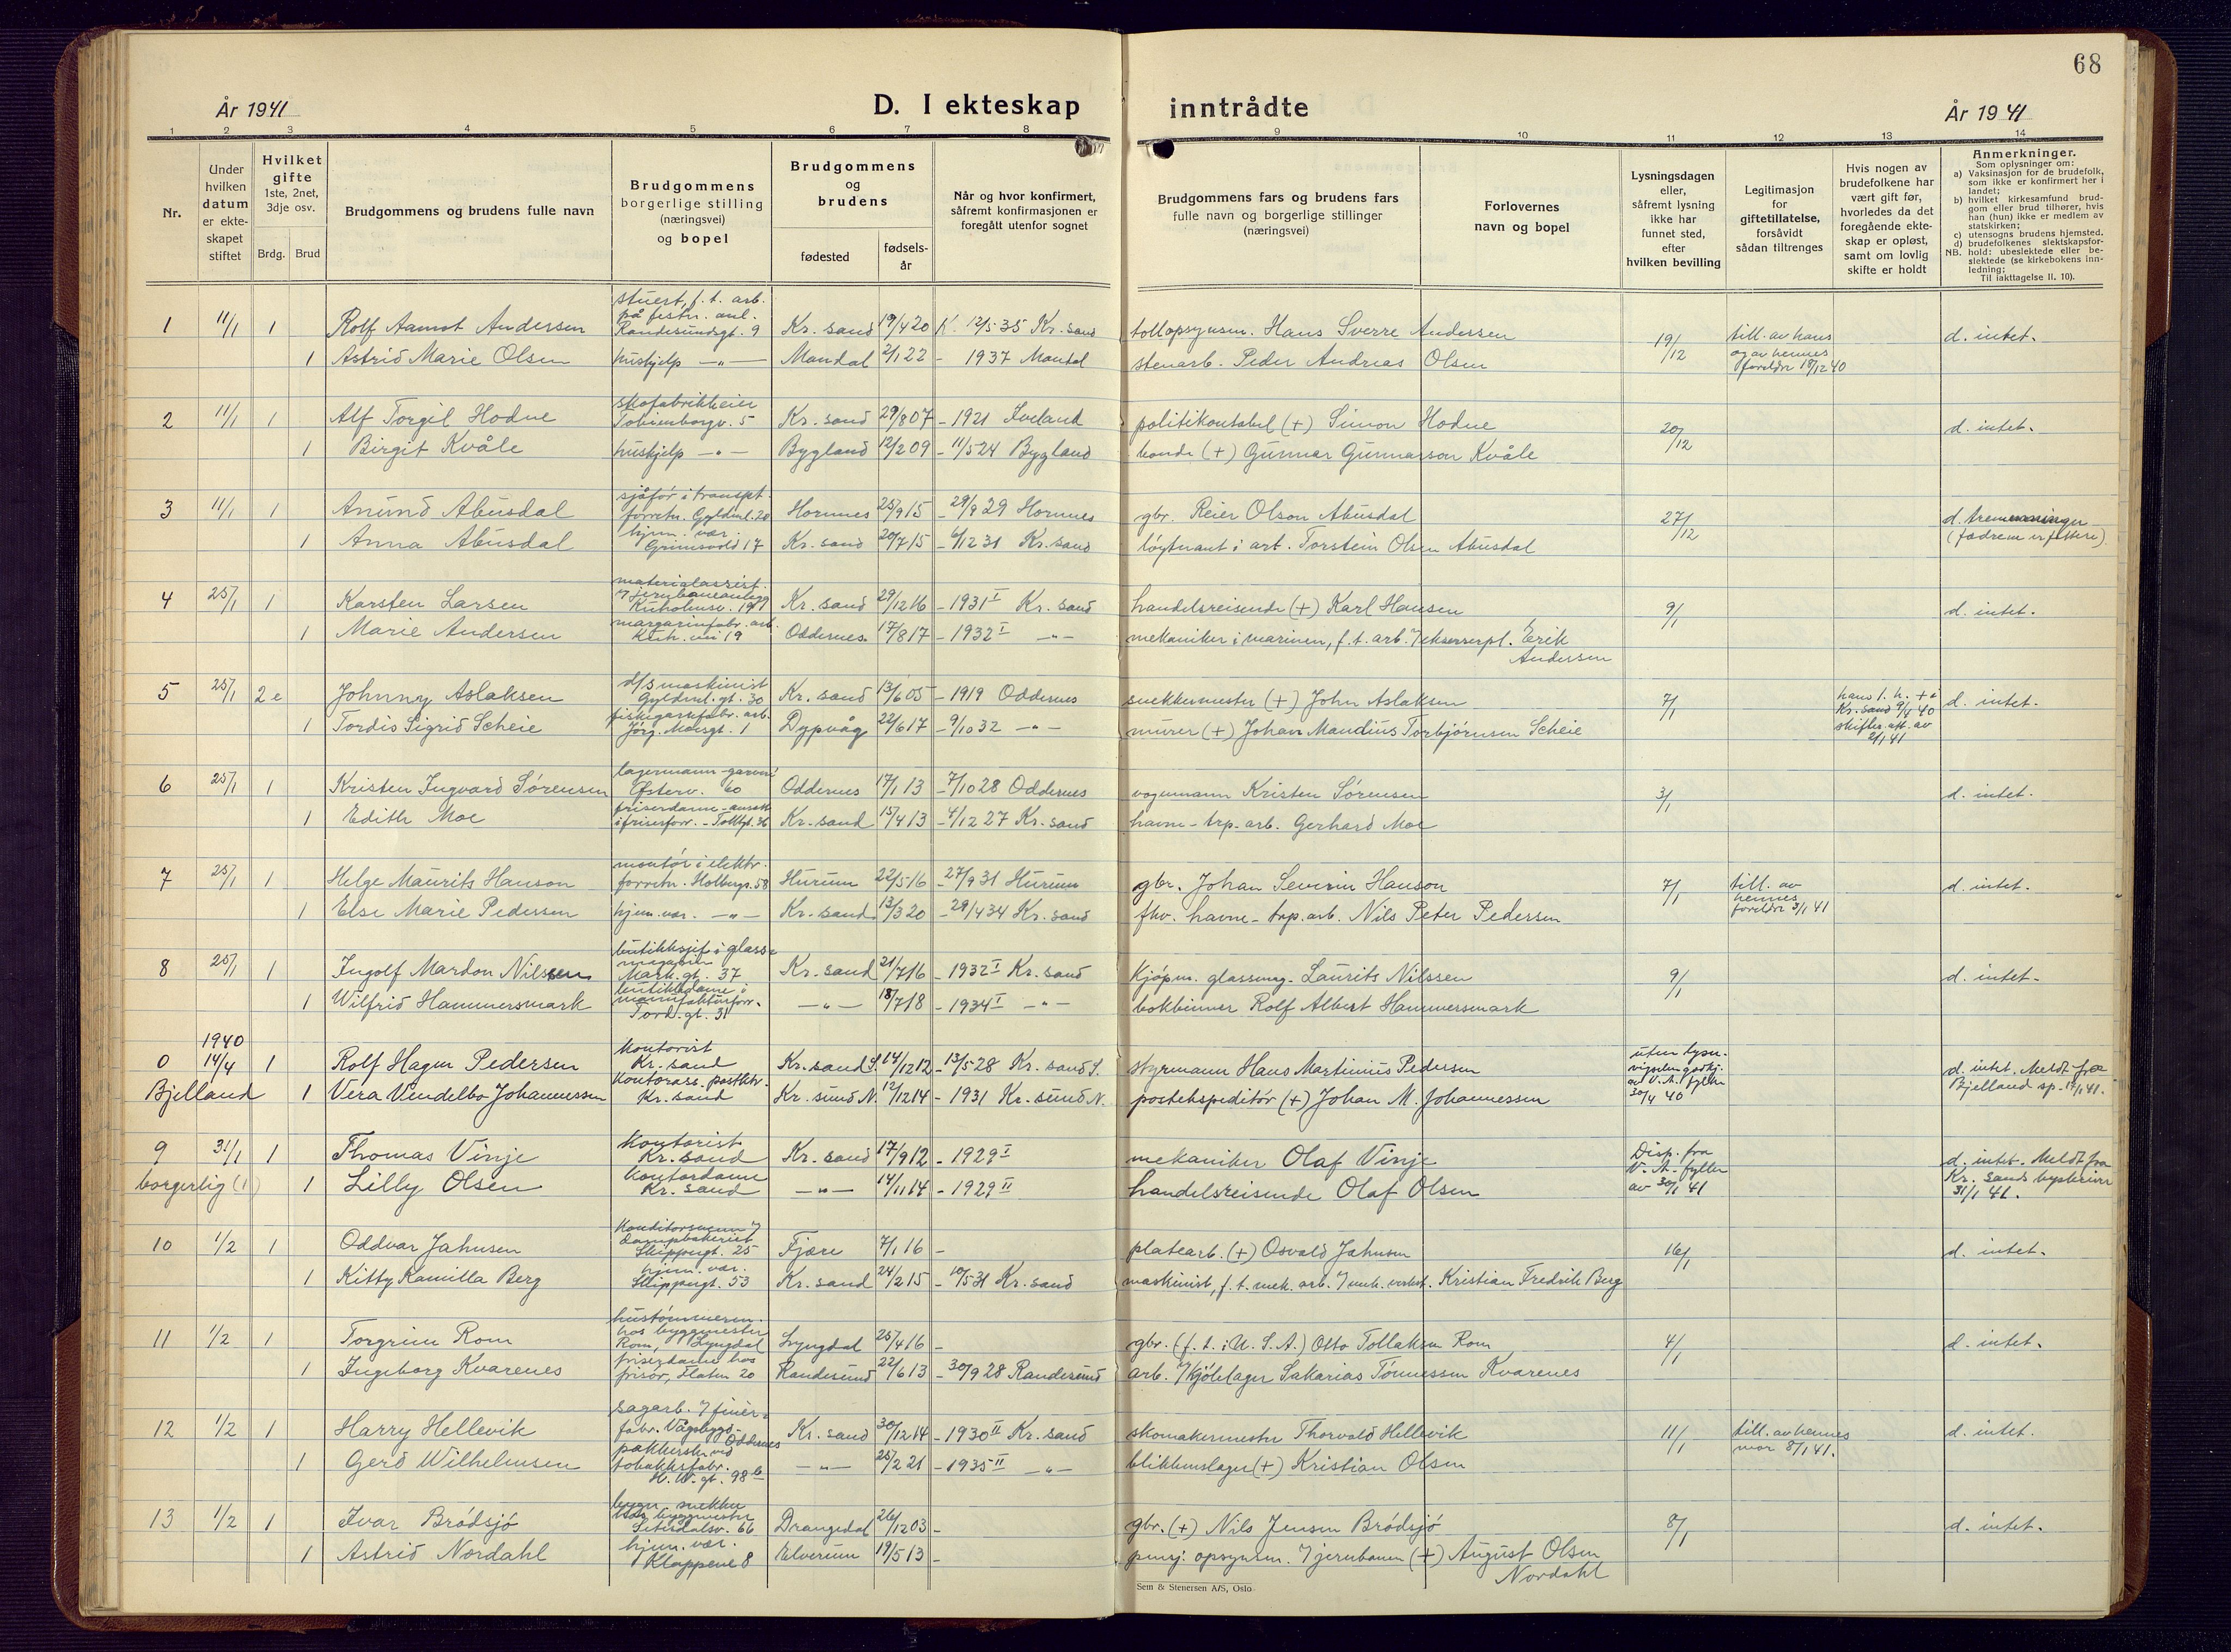 68
År 1941
D. I ekteskap inntrådte
År 1941
1 2 3 4 5 6 7 8 9 10 11 12 13 14
Nr.
Under hvilken datum er ekte-skapet stiftet
Hvilket gifte 1ste, 2net, 3dje osv.
Brdg. Brud
Brudgommens og brudens fulle navn
Brudgommens borgerlige stilling (næringsvei) og bopel
Brudgommens og brudens
fødested
fødsels-år
Når og hvor konfirmert, såfremt konfirmasjonen er foregått utenfor sognet
Brudgommens fars og brudens fars fulle navn og borgerlige stillinger (næringsvei)
Forlovernes navn og bopel
Lysningsdagen eller, såfremt lysning ikke har funnet sted, efter hvilken bevilling
Legitimasjon for giftetillatelse, forsåvidt sådan tiltrenges
Hvis nogen av brudefolkene har vært gift før, hvorledes da det foregående ekte-skap er opløst, samt om lovlig skifte er holdt
Anmerkninger.
Som oplysninger om:
a) Vaksinasjon for de brudefolk, som ikke er konfirmert her i landet;
b) hvilket kirkesamfund brud-gom eller brud tilhører, hvis han (hun) ikke er medlem av statskirken;
c) utensogns brudens hjemsted.
d) brudefolkenes slektskapsfor-hold: ubeslektede eller be-slektede (se kirkebokens inn-ledning;
NB.
Til iakttagelse II. 10).
1 11/1 1 Rolf Aamot Andersen stuert, f.t. arb. på festn. anl. Randesundsgt. 9 Kr.sand 19/4 20 K. 12/5 35 Kr.sand tollopsynsm. Hans Sverre Andersen 19/12 till. av hans og av hennes foreldre 18/12 40 d. intet.
1 Astrid Marie Olsen hushjelp -"- Mandal 2/1 22 - 1937 Mandal stenarb. Peder Andreas Olsen
2 11/1 1 Alf Torgil Hodne skofabrikkeier 5 Kr.sand 29/8 07 - 1921 Iveland politikonstabel (+) Simon Hodne 20/12 d. intet.
1 Birgit Kvåle hushjelp -"- Bygland 12/2 09 - 11/5 24 Bygland bonde (+) Gunnar Gunnarson Kvåle
3 11/1 1 Anund Abusdal sjåfør i transpt. forretn. Gyldenl. 20 Hornnes 25/9 15 - 29/9 29 Hornnes gbr. Reier Olson Abusdal 27/12 d. tremenninger
1 Anna Abusdal hjem. vær. Grimsvold 17 Kr.sand 20/7 15 - 6/12 31 Kr.sand løytnant i art. Torstein Olsen Abusdal
4 25/1 1 Karsten Larsen materialassist. v/ jernbaneanlegg Kuholmsv. 19 Kr.sand 29/12 16 - 1931 I Kr.sand handelsreisende (+) Karl Hansen 9/1 d. intet.
1 Marie Andersen margarinfabr. arb. Kuh.vei 19 Oddernes 17/8 17 - 1932 I -"- mekaniker i marinen, f.t. arb. v/ ekserserpl. Erik Andersen
5 25/1 2e Johnny Aslaksen d/s maskinist Gyldenl. gt. 30 Kr.sand 13/6 05 - 1919 Oddernes snekkermester (+) John Aslaksen 7/1 hans 1. h. + i Kr.sand 9/4 40 skifteatt. av 2/1 41 d. intet.
1 Tordis Sigrid Scheie fiskegarnfabr. arb. Jørg. Moesgt. 1 Dypvåg 22/6 17 - 9/10 32 -"- murer (+) Johan Maudius Torbjørnsen Scheie
6 25/1 1 Kristen Ingvard Sørensen lagermann - garveri Østerv. 60 Oddernes 17/1 13 - 7/10 28 Oddernes vognmann Kristen Sørensen 3/1 d. intet.
1 Edith Moe friserdame - ansatt i friserforr. - Tollbgt. 36 Kr.sand 15/4 13 - 4/12 27 Kr.sand havne-trp. arb. Gerhard Moe
7 25/1 1 Helge Maurits Hanson montør i elektr. forretn. Holbergs. 58 Hurum 22/5 16 - 27/9 31 Hurum gbr. Johan Severin Hanson 7/1 till. av hennes foreldre 3/1 41 d. intet.
1 Else Marie Pedersen hjem. vær. -"- Kr.sand 13/3 20 - 29/4 34 Kr.sand fhv. havne-trp. arb. Nils Peter Pedersen
8 25/1 1 Ingolf Mardon Nilssen butikksjef i glassmagasin Mark.gt. 37 Kr.sand 21/7 16 - 1932 I Kr.sand Kjøpm. glassmag. Laurits Nilssen 9/1 d. intet.
1 Wilfrid Hammersmark butikkdame i manufakturforr. Tord.gt. 31 -"- 18/7 18 - 1934 I -"- bokbinner Rolf Albert Hammersmark
1940
0 14/4 1 Rolf Hagen Pedersen Kontorist Kr.sand Kr.sand S. 14/12 12 - 13/5 28 Kr.sand S. styrmann Hans Martinius Pedersen uten lysn. vigselen godkj. av V.A. fylke 30/4 40 d. intet. Meldt fra Bjelland sp. 17/1 41.
Bjelland 1 Vera Vendelbo Johannessen Kontorass. postktr. Kr.sand Kr.sund N. 12/12 14 - 1931 Kr.sund N. postekspeditør (+) Johan M. Johannessen
9 31/1 1 Thomas Vinje Kontorist Kr.sand Kr.sand 17/9 12 - 1929 I mekaniker Olaf Vinje Disp. fra V.-A. fylke av 30/1 41 d. intet. Meldt fra Kr.sands byskriver 31/1 41.
borgerlig (1) 1 Lilly Olsen Kontordame Kr.sand -"- 14/11 14 - 1929 II handelsreisende Olaf Olsen
10 1/2 1 Oddvar Jahnsen Konditorsvenn v/ dampbakeriet Skippergt. 25 Fjære 7/1 16 - platearb. (+) Osvald Jahnsen 16/1 d. intet.
1 Kitty Kamilla Berg hjem. vær. Skippergt. 53 Kr.sand 24/2 15 - 10/5 31 Kr.sand maskinist, f.t. mek. arb. v/ mek. verkst. Kristian Fredrik Berg
11 1/2 1 Torgrim Rom hustømmerm. hos byggmester Rom, Lyngdal Lyngdal 25/4 16 - gbr. (f.t. i U.S.A.) Otto Tollaksen Rom 4/1 d. intet.
1 Ingeborg Kvarenes friserdame hos frisør, Flaten 20 Randesund 22/6 13 - 30/9 28 Randesund arb. v/ kjølelager Sakarias Tønnessen Kvarenes
12 1/2 1 Harry Hellevik sagarb. v/ finér-fabr. Vågsbygd - Oddernes Kr.sand 30/12 14 - 1930 II Kr.sand skomakermester Thorvald Hellevik 11/1 till. av hennes mor 8/1 41. d. intet.
1 Gerd Wilhelmsen pakkerske ved tobakksfabr. H. W. gt. 98 b -"- 25/2 21 - 1935 II -"- blikkenslager (+) Kristian Olsen
13 1/2 1 Ivar Brødsjø bygn. snekker hos byggmester Setesdalsv. 66 Drangedal 26/12 03 - gbr. (+) Nils Jensen Brødsjø 8/1 d. intet.
1 Astrid Nordahl hjem. vær. Kloppene 8 Elverum 19/5 13 - pensj. opsynsm. v/ jernbanen (+) August Olsen Nordahl
Sem & Stenersen A/S, Oslo